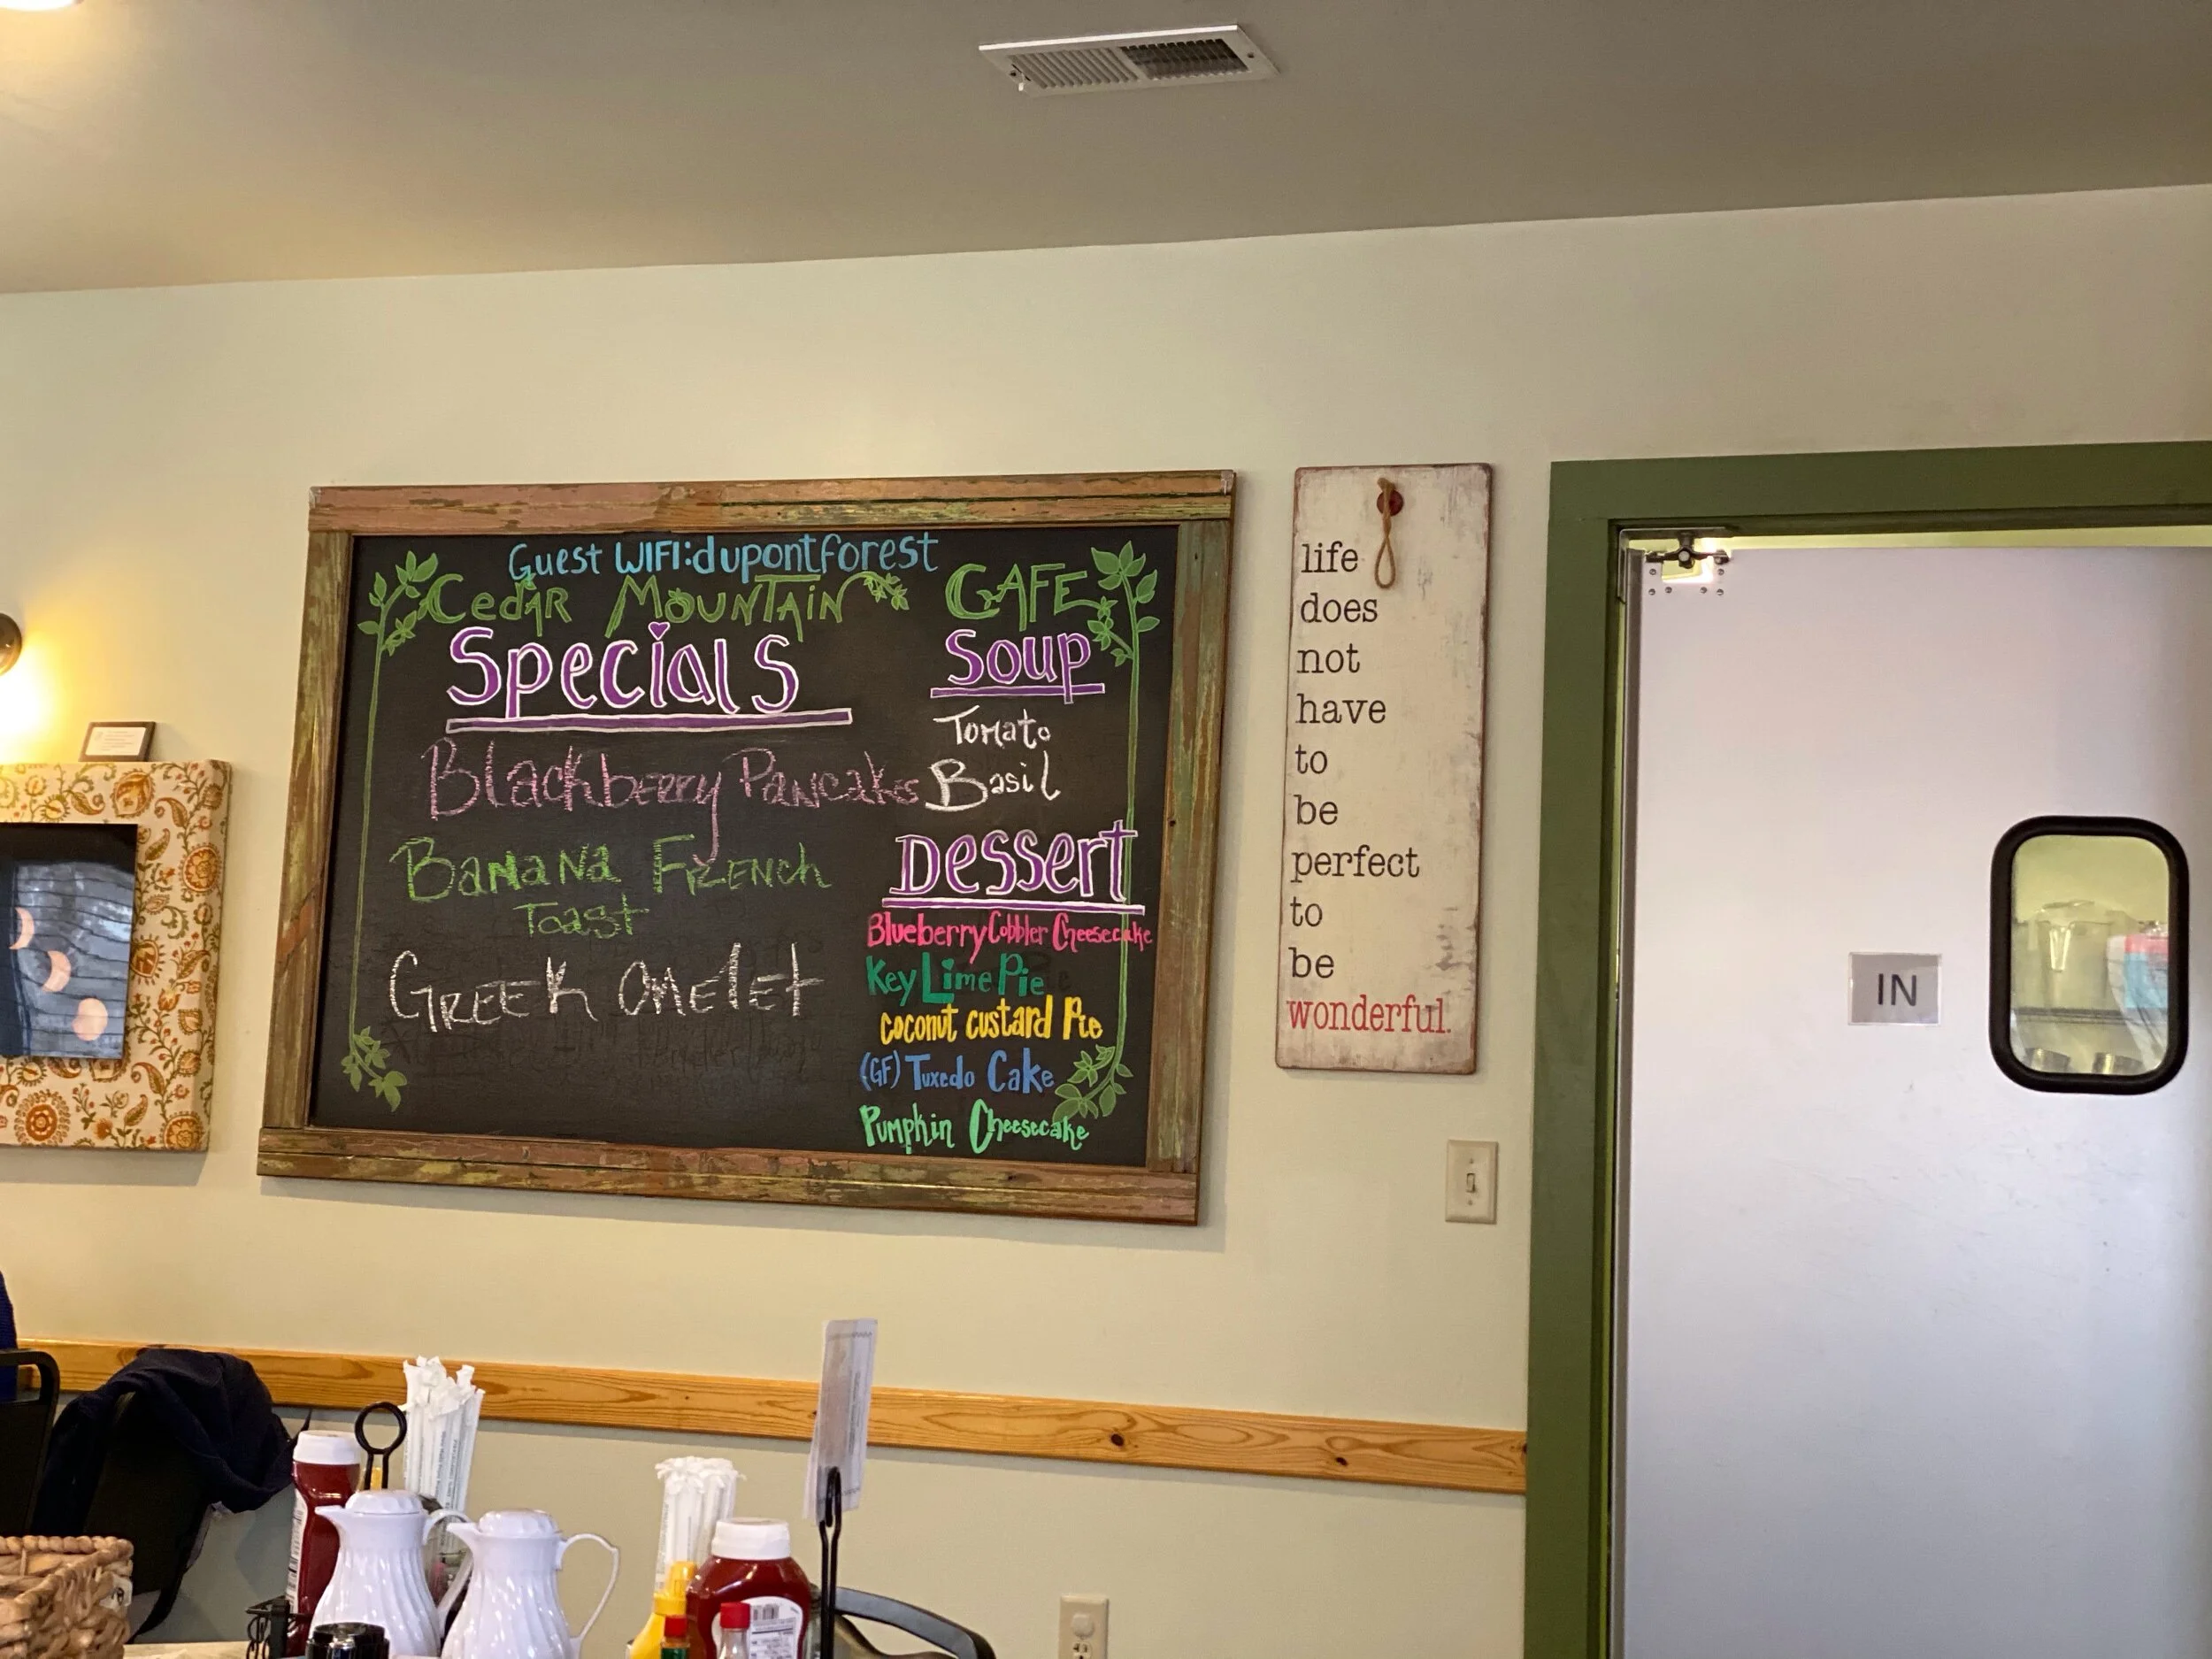 Guest WIFI: dupontforest
Cedar Mountain CAFE
Specials
Blackberry Pancakes
Banana French
Toast
Greek Omelet
Soup
Tomato
Basil
Dessert
Blueberry Cobbler Cheesecake
Key Lime Pie
coconut custard Pie
(GF) Tuxedo Cake
Pumpkin Cheesecake
life
does
not
have
to
be
perfect
to
be
wonderful.
IN